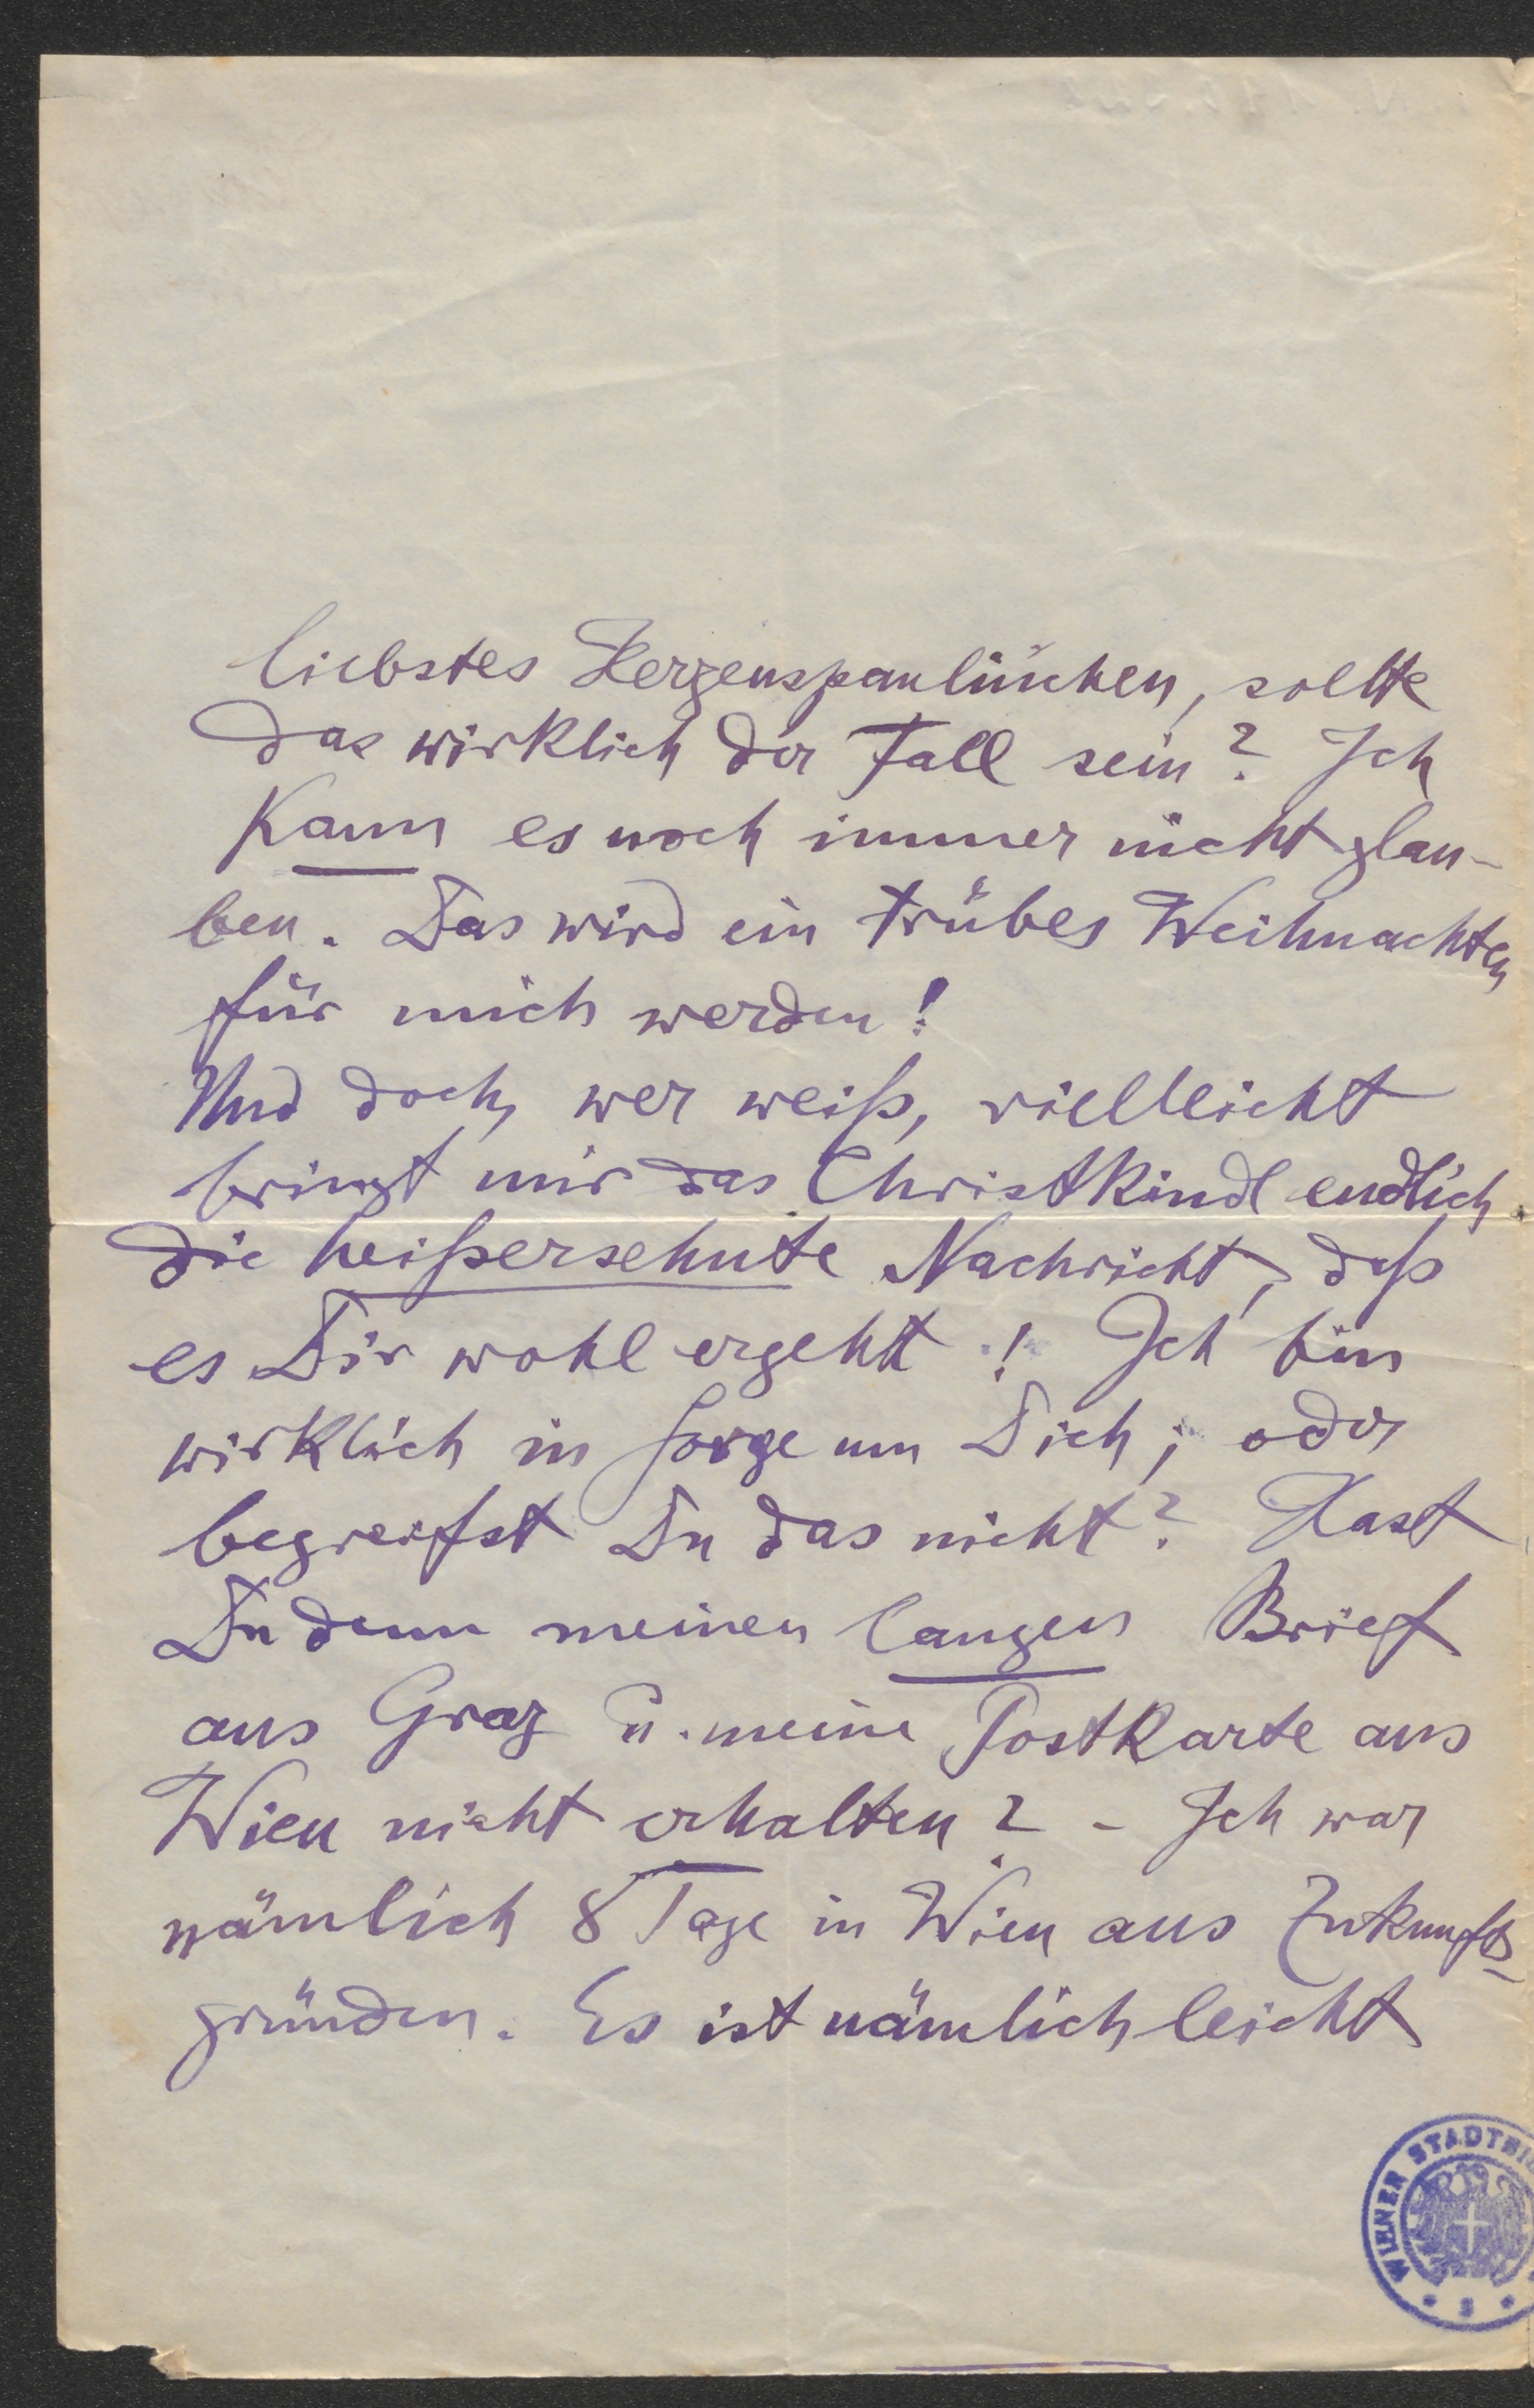 liebstes Herzenspaulinchen, sollte
das wirklich der Fall sein? Ich
kann es noch immer nicht glau-
ben. Das wird ein trübes Weihnachten
für mich werden!
Und doch, wer weiß, vielleicht
bringt mir das Christkindl endlich
die heißersehnte Nachricht, daß
es Dir wohl ergeht! Ich bin
wirklich in Sorge um Dich; oder
begreifst Du das nicht? Hast
Du denn meinen langen Brief
aus Graz u. meine Postkarte aus
Wien nicht erhalten? - Ich war
nämlich 8 Tage in Wien aus Zukunfts-
gründen. Es ist nämlich leicht
WIENER STADTBI